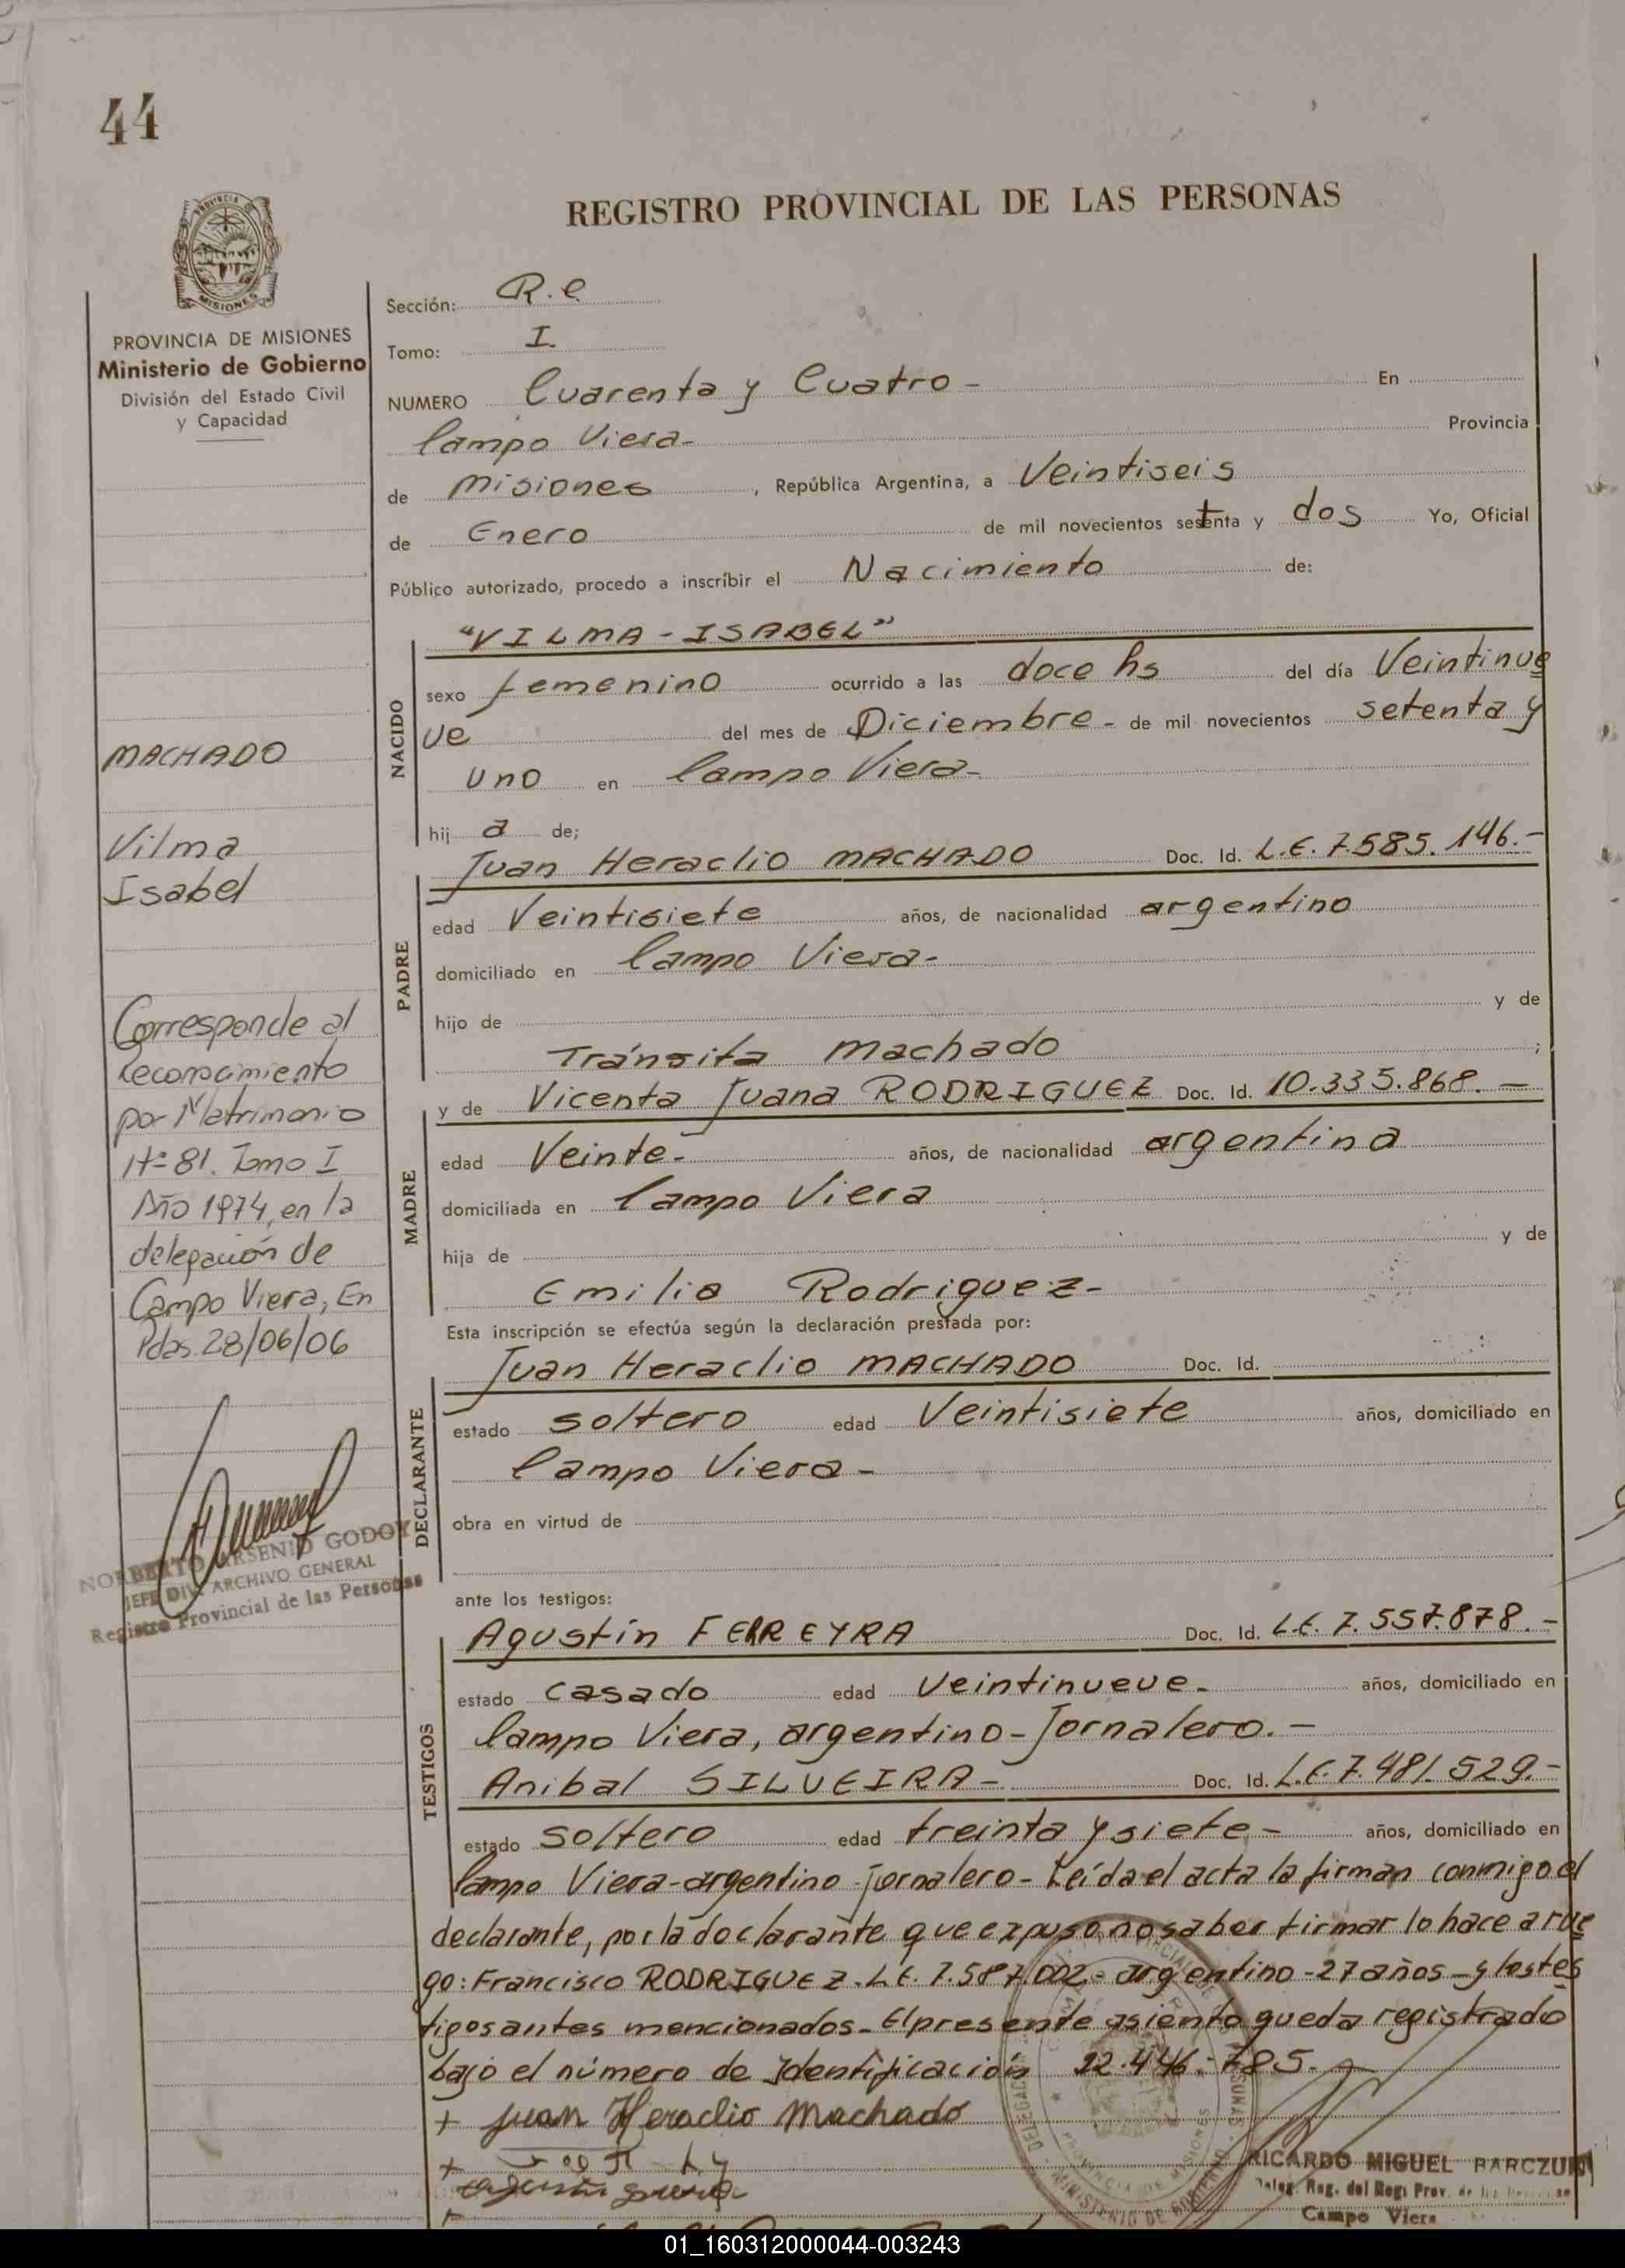 44
REGISTRO PROVINCIAL DE LAS PERSONAS
PROVINCIA DE MISIONES
Ministerio de Gobierno
División del Estado Civil
y Capacidad
MACHADO
Vilma
Isabel
Corresponde al
Reconocimiento
por Matrimonio
Nº 81. Tomo I
Año 1974, en la
delegación de
Campo Viera, En
Pdas. 28/06/06
NORBERTO ARSENIO GODOY
JEFE DIV. ARCHIVO GENERAL
Registro Provincial de las Personas
Sección: R.e
Tomo: I.
NUMERO Cuarenta y Cuatro - En
Campo Viera- Provincia
de Misiones, República Argentina, a Veintiseis
de Enero de mil novecientos setenta y dos Yo, Oficial
Público autorizado, procedo a inscríbir el Nacimiento de:
NACIDO
"VILMA - ISABEL"
sexo femenino ocurrido a las doce hs del día Veintinue
ve del mes de Diciembre - de mil novecientos setenta y
uno en Campo Viera-
hij a de;
PADRE
Juan Heraclio MACHADO Doc. Id. L.E. 7.585.146.-
edad Veintisiete años, de nacionalidad argentino
domiciliado en Campo Viera-
hijo de y de
Tránsita Machado ;
MADRE
y de Vicenta Juana RODRIGUEZ Doc. Id. 10.335.868. -
edad Veinte- años, de nacionalidad argentina
domiciliada en Campo Viera
hija de y de
Emilia Rodriguez-
Esta inscripción se efectúa según la declaración prestada por:
DECLARANTE
Juan Heraclio MACHADO Doc. Id.
estado soltero edad Veintisiete años, domiciliado en
Campo Viera-
obra en virtud de
ante los testigos:
TESTIGOS
Agustín FERREYRA Doc. Id. L.E. 7.557.878.-
estado casado edad Veintinueve- años, domiciliado en
Campo Viera, argentino-Jornalero.-
Anibal SILVEIRA- Doc. Id. L.E. 7.481.529.-
estado soltero edad treinta y siete- años, domiciliado en
Campo Viera-argentino-jornalero- Leída el acta la firman conmigo el
declarante, por la declarante que expuso no saber firmar lo hace a rue
go: Francisco RODRIGUEZ- L.E. 7.587.002- argentino-27 años-y los tes
tigos antes mencionados- El presente asiento queda registrado
bajo el número de Identificación 22.446.785.-
+ Juan Heraclio Machado
+
+
RICARDO MIGUEL BARCZUK
Deleg. Reg. del Regi Prov. de las Personas
Campo Viera
01_160312000044-003243